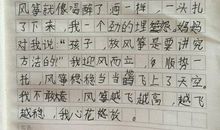 风筝就像喝醉了酒一样，一头扎
了下来，我一个劲的埋怨，妈妈
对我说“孩子，放风筝是要讲究
方法的”我迎风而立，顺势一
扎，风筝终于当当的飞上了天空。
我不敢放，风筝越飞越高，越飞
越稳，我心花怒放。